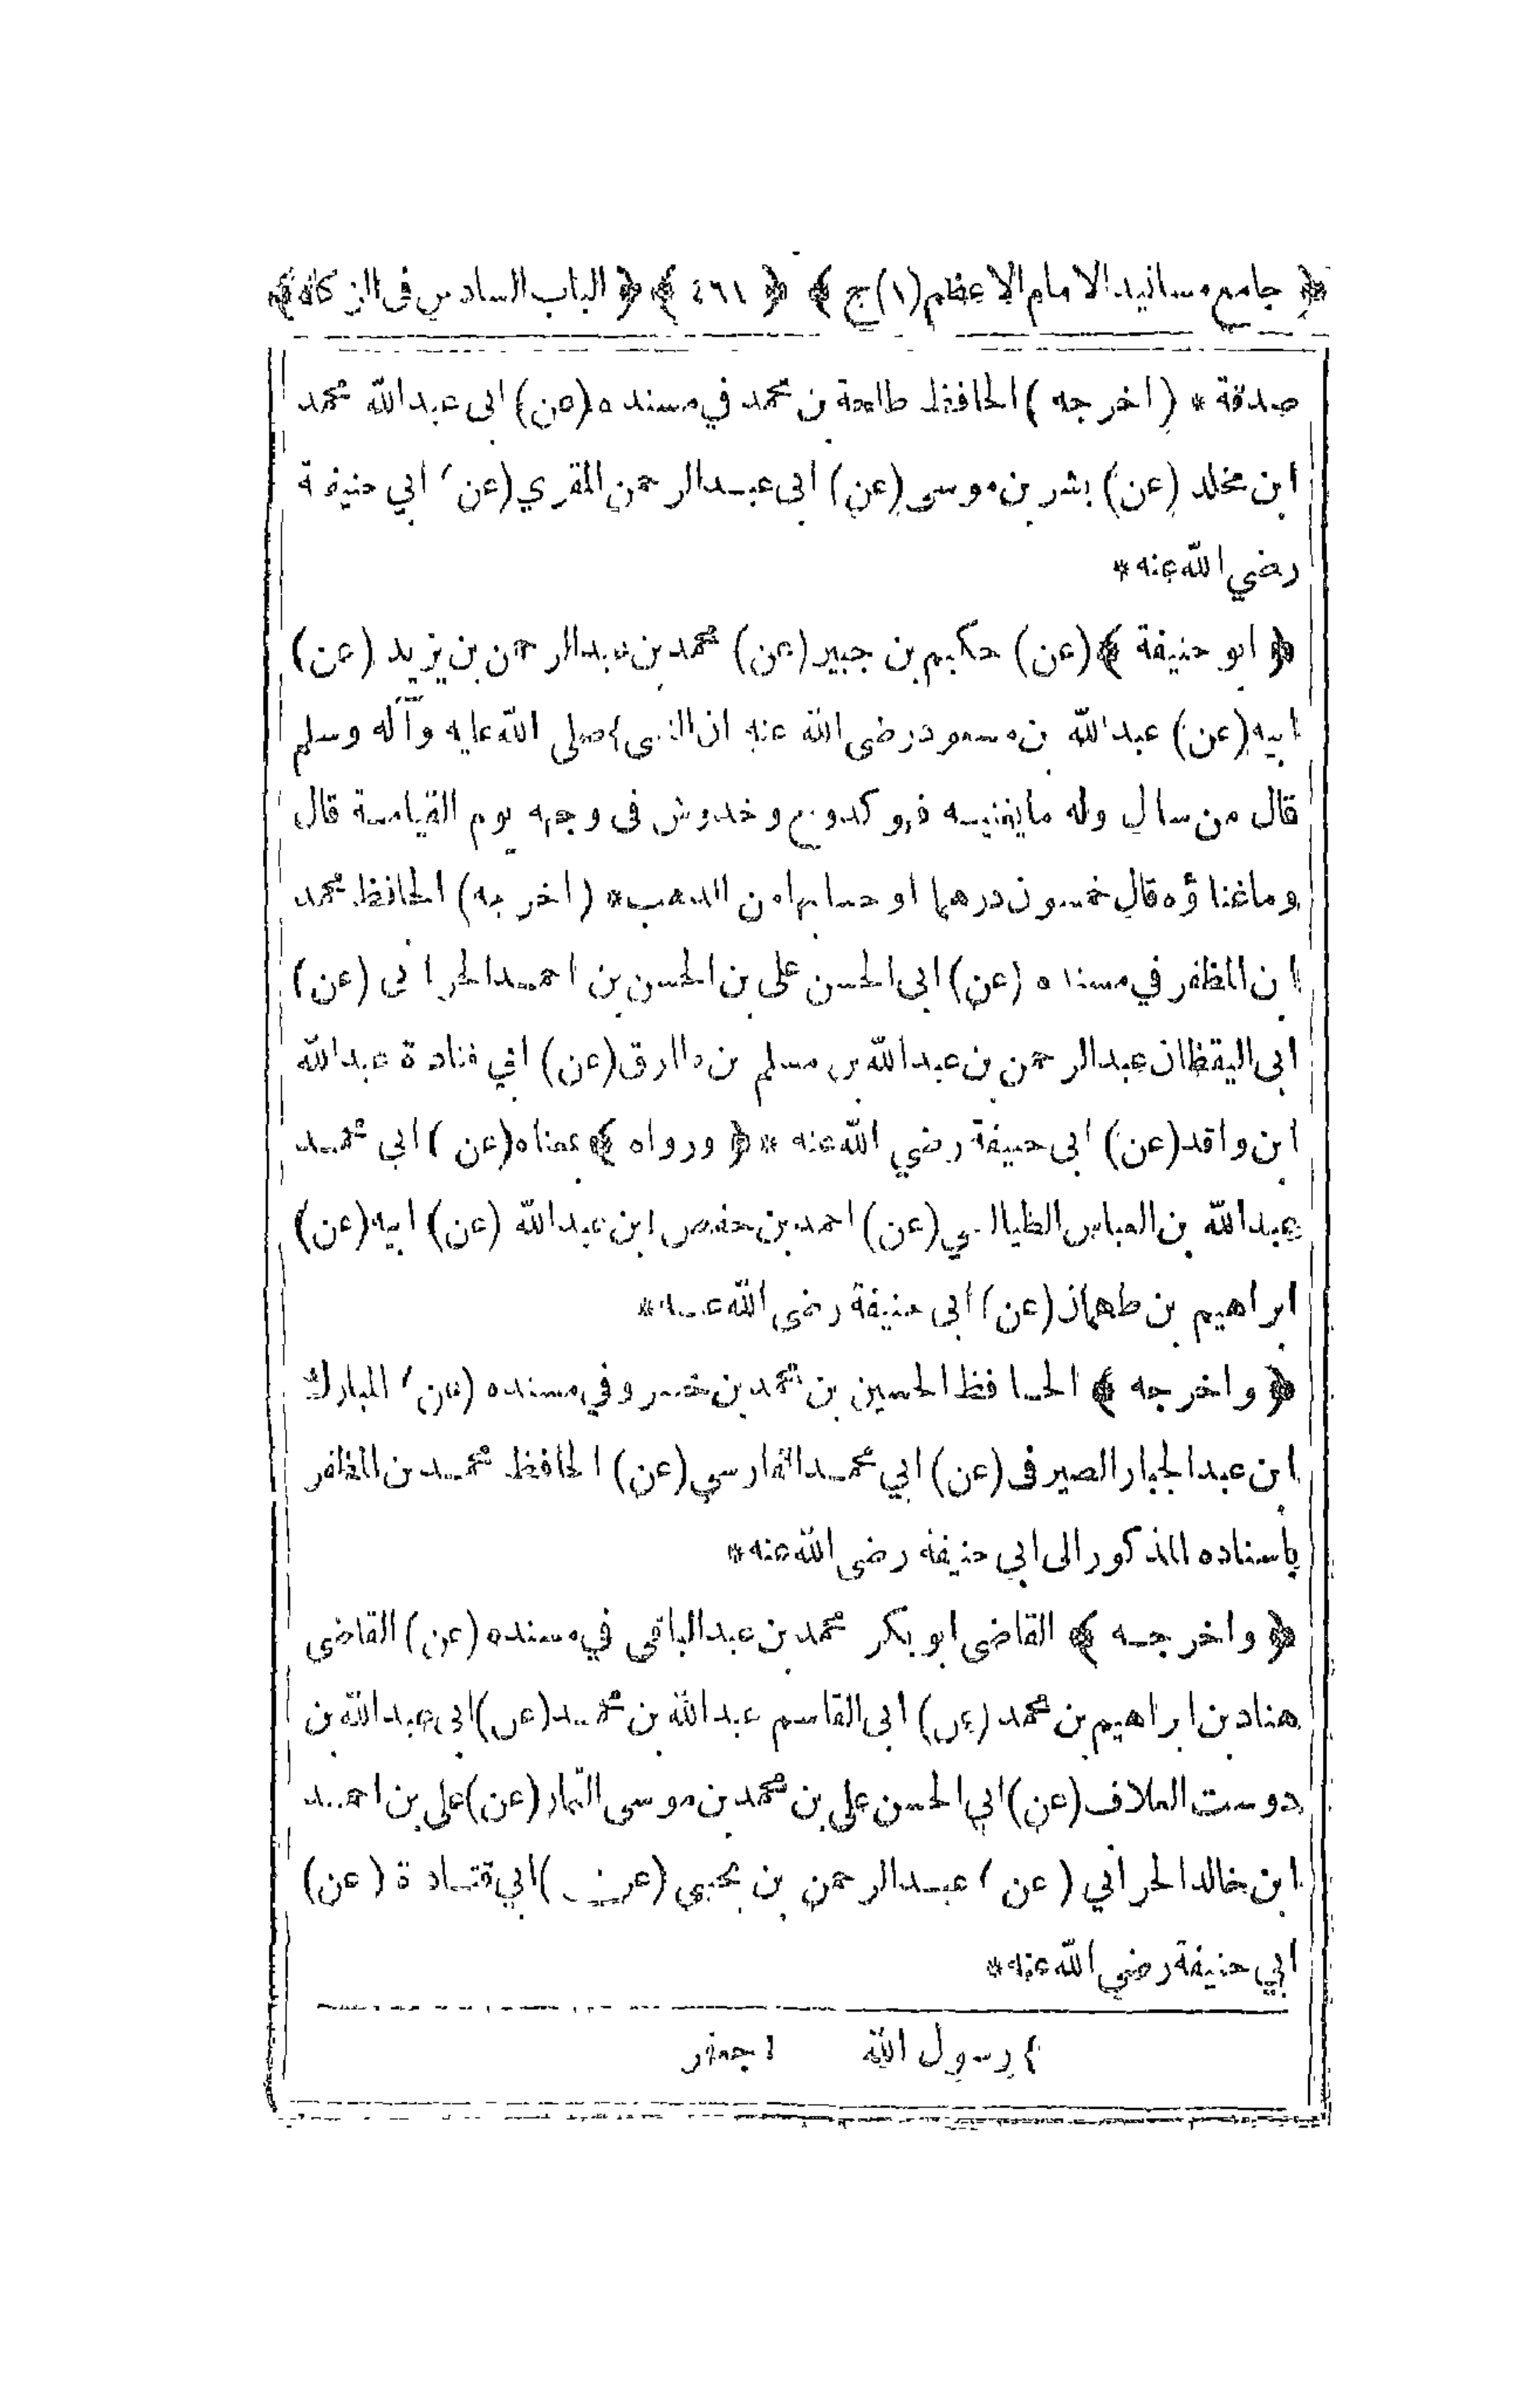 ﴿ جامع مسانيد الامام الاعظم (١) ج ﴾ ﴿ ٤٦١ ﴾ ﴿ الباب السادس فى الزكاة ﴾
صدقة * ( اخرجه ) الحافظ طلحة بن محمد في مسنده (عن) ابى عبد الله محمد
ابن مخلد (عن) بشر بن موسى (عن) ابى عبد الرحمن المقري (عن) ابي حنيفة
رضي الله عنه *
﴿ ابو حنيفة ﴾ (عن) حكيم بن جبير (عن) محمد بن عبد الرحمن بن يزيد (عن)
ابيه (عن) عبد الله بن مسعود رضى الله عنه ان النبى صلى الله عليه وآله وسلم
قال من سال وله ما يغنيه فهو كدوح وخدوش فى وجهه يوم القيامة قال
وما غناؤه قال خمسون درهما او حسابها من الذهب * ( اخرجه ) الحافظ محمد
ابن المظفر في مسنده (عن) ابى الحسن على بن الحسن بن احمد الحرانى (عن)
ابى اليقظان عبد الرحمن بن عبد الله بن مسلم بن (عن) ابي قتادة عبد الله
ابن واقد (عن) ابى حنيفة رضي الله عنه * ﴿ ورواه ﴾ بمعناه (عن) ابي محمد
عبد الله بن العباس الطيالسي (عن) احمد بن حفص ابن عبد الله (عن) ابيه (عن)
ابراهيم بن طهمان (عن) ابى حنيفة رضى الله عنه *
﴿ واخرجه ﴾ الحافظ الحسين بن محمد بن خسرو في مسنده (عن) المبارك
ابن عبد الجبار الصيرفى (عن) ابي محمد الفارسي (عن) الحافظ محمد بن المظفر
باسناده المذكور الى ابي حنيفة رضى الله عنه *
﴿ واخرجه ﴾ القاضى ابو بكر محمد بن عبد الباقى في مسنده (عن) القاضى
هناد بن ابراهيم بن محمد (عن) ابى القاسم عبد الله بن محمد (عن) ابى عبد الله بن
دوست العلاف (عن) ابي الحسن علي بن محمد بن موسى التمار (عن) علي بن احمد
ابن خالد الحراني (عن) عبد الرحمن بن يحيى (عن) ابي قتادة (عن)
ابي حنيفة رضي الله عنه *
رسول الله جعفر